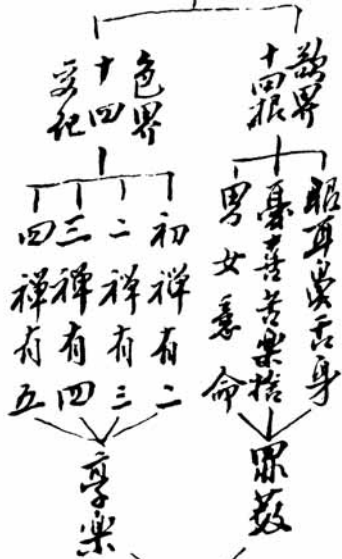 欲界
十四根
眼耳鼻舌身
憂喜苦樂捨
男女意命
眾数
色界
十四
变化
初禅有二
二禅有三
三禅有四
四禅有五
享樂